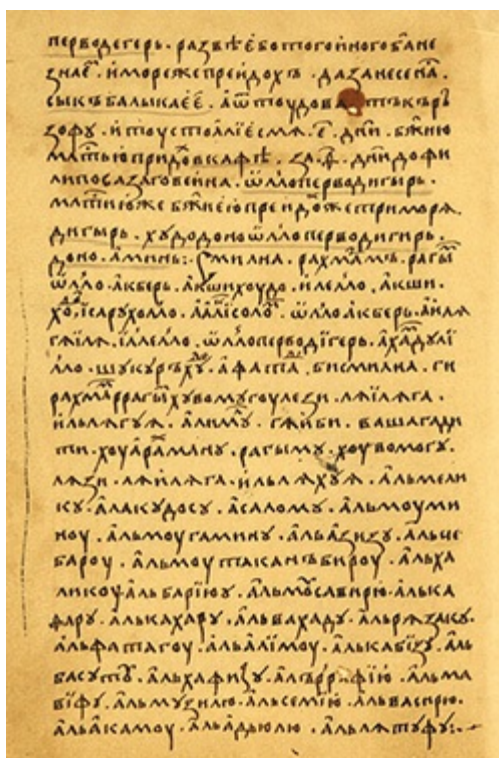 перводегерь. развѣ е҆ботогои҆ногобг҃ане
знае. и҆морежепреидохъ. дазанесе нꙗ.
сыкъбалыкаее. а҆ѿтоудова тъкъръ
зофу. и҆тоустоꙗ́лі е҆смꙗ. е҃. дн҃и. бж҃їю
млт҃їюпридохвкафѣ. за. ѳ҃. дн҃идофи
липовазаговеина. ѿ́ллоперводигырь.
млт҃їюже бж҃иеюпреидожетриморѧ.
дигырь. худодоноѿ́ллоперводигирь.
доно. а҆минь: смилна. рахмамъ. рагым
ѿ́лло. а҆кберь. а҆кшихоудо. илелло. а҆кши.
ходо. їсарухоало. а҆алїсоло. ѿллоакберь. а҆илѧ
гѧилѧ. їллелло. ѿ́ллоперводїгерь. ахамдулї
лло. шукуръхудо. а҆фатад. бисмилна. ги
рахмамррагымхувомугоулези. лѧїлѧга.
ильлѧгуѧ. а҆лимулъ. гѧиби. вашагади
ти. хоуарахману. рагыму. хоувомогу.
лѧзи. лѧилѧга. ильлѧхуѧ. а҆льмели
ку. а҆лакудосу. а҆салому. а҆льмоуми
ноу. а҆льмоугамину. а҆льазизу. а҆льче
бароу. а҆льмоутаканъбироу. а҆льха
ликоу а҆льбариюу. а҆льмусавирю. а҆лька
фару. а҆лькахару. а҆львахаду. а҆льрѧзаку.
а҆льфатагоу. а҆льалимоу. а҆лькабизу. а҆ль
басуту. а҆льхафизу. а҆льррафию. а҆льма
вифу. а҆льмузилю. а҆льсемию. а҆львасирю.
а҆льакамоу. а҆льадьюлю. а҆льлѧтуфу:~